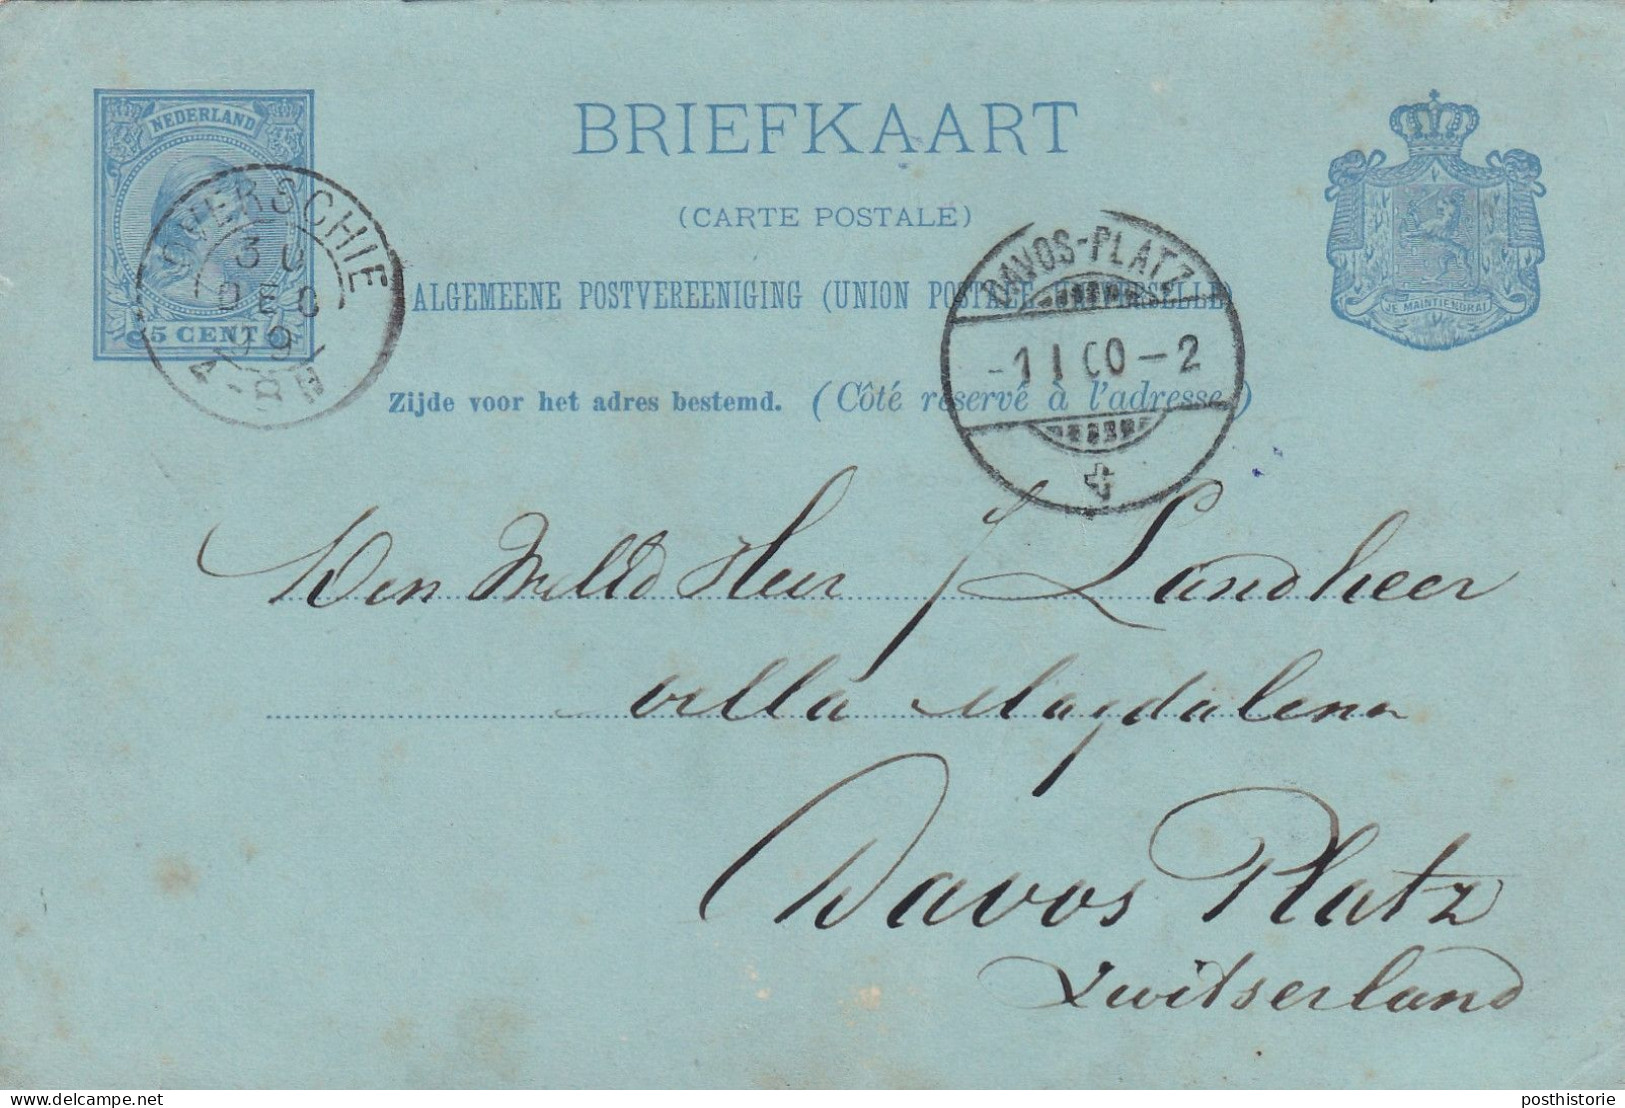 NEDERLAND
5 CENT
BRIEFKAART
(CARTE POSTALE)
ALGEMEENE POSTVEREENIGING (UNION POSTALE UNIVERSELLE)
Zijde voor het adres bestemd. (Côté réservé à l'adresse.)
JE MAINTIENDRAI
OVERSCHIE
30
DEC
99
DAVOS-PLATZ
-1 I 00-2
Den Heer J Landheer
villa Magdalena
Davos Platz
Zwitserland
delcampe.net
posthistorie